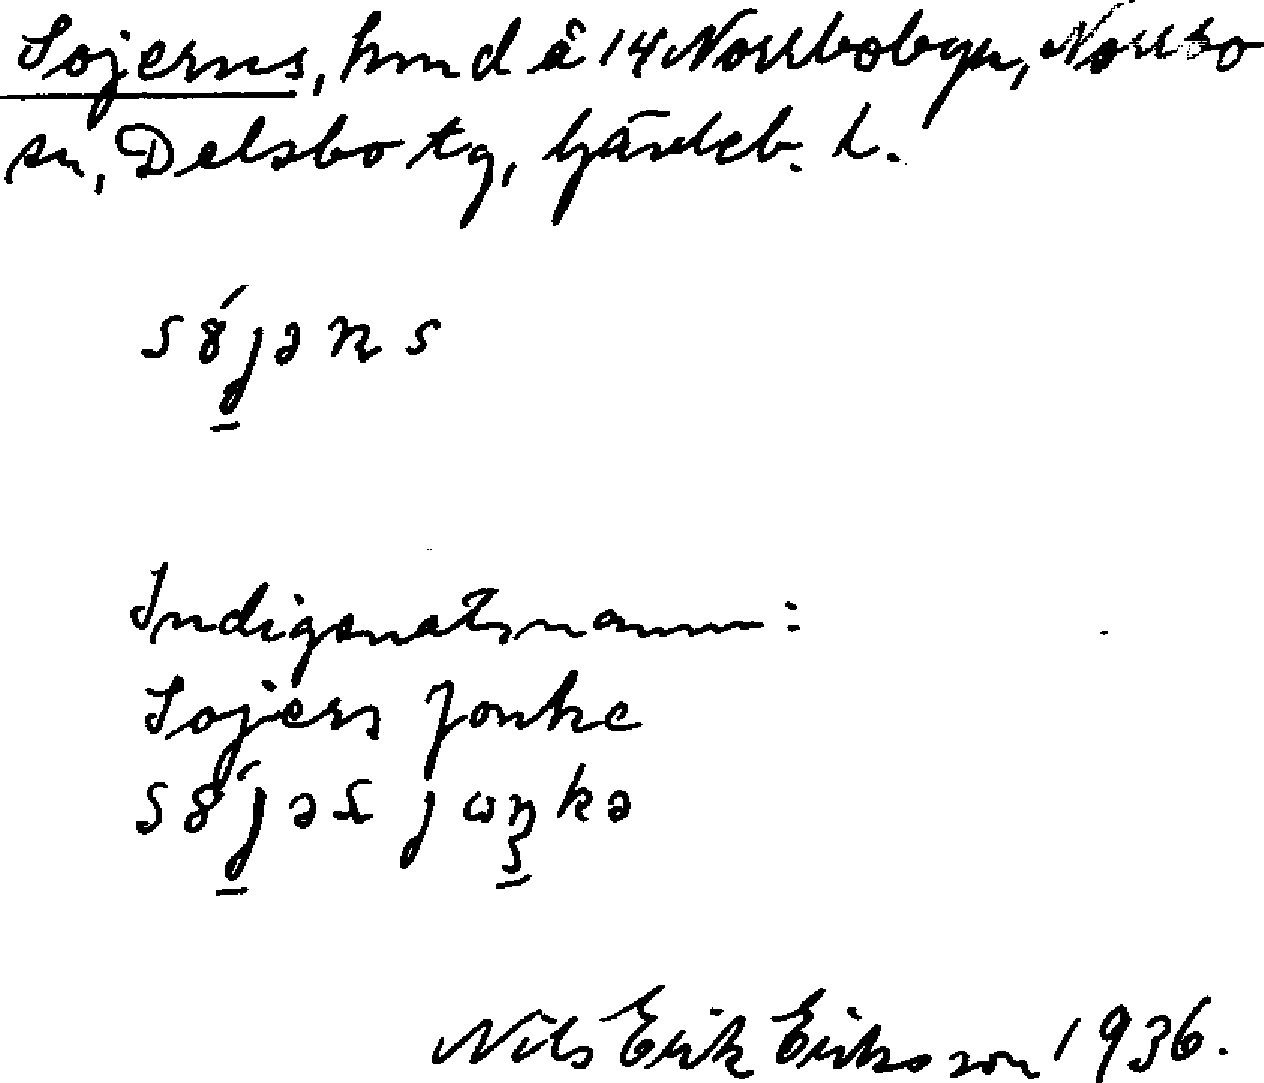 Sojerns, hmd å 14 Norrbobyn, Norrbo
sn, Delsbo tg, Gävleb. L.
sójəns
Indigenatsnamn:
Sojers Jonke
jωŋkə
Nils Erik Eriksson 1936.